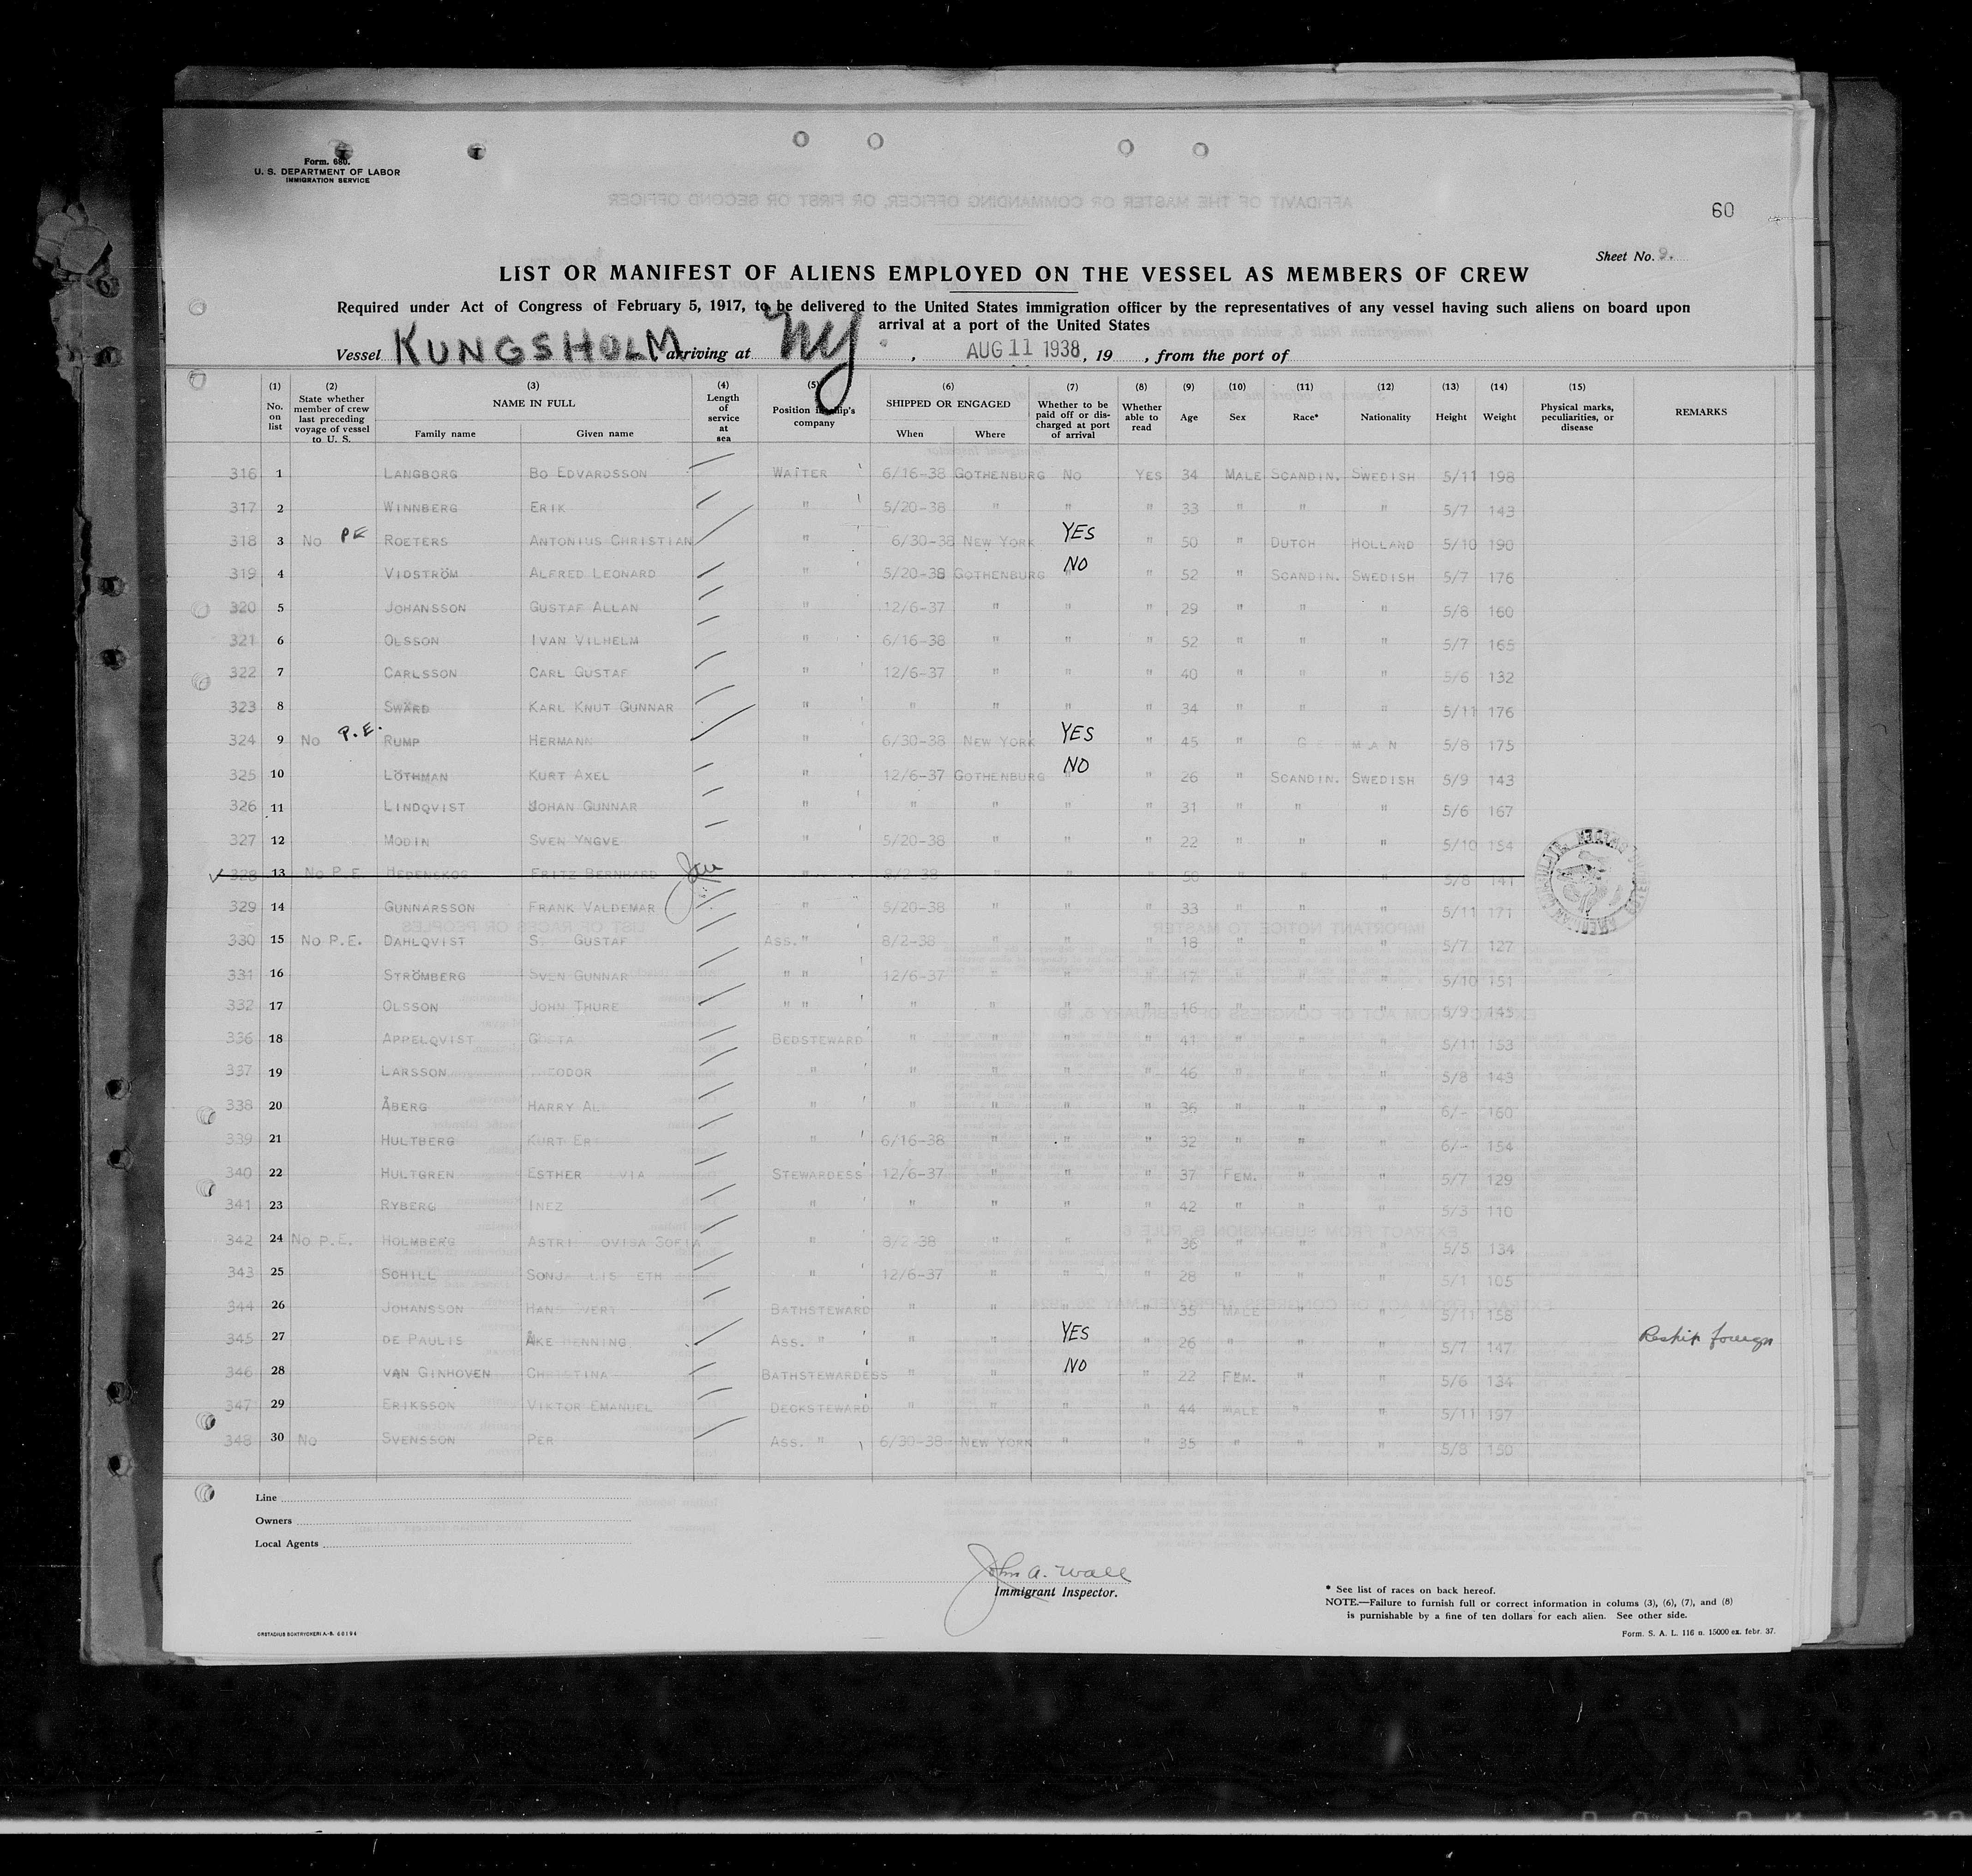 Form. 680.
U. S. DEPARTMENT OF LABOR
IMMIGRATION SERVICE
60
Sheet No. 9.
LIST OR MANIFEST OF ALIENS EMPLOYED ON THE VESSEL AS MEMBERS OF CREW
Required under Act of Congress of February 5, 1917, to be delivered to the United States immigration officer by the representatives of any vessel having such aliens on board upon
arrival at a port of the United States
Vessel KUNGSHOLM arriving at NY, AUG 11 1938, 19 , from the port of
(1) No. on list (2) State whether member of crew last preceding voyage of vessel to U. S. (3) NAME IN FULL Family name Given name (4) Length of service at sea (5) Position in ship's company (6) SHIPPED OR ENGAGED When Where (7) Whether to be paid off or discharged at port of arrival (8) Whether able to read (9) Age (10) Sex (11) Race* (12) Nationality (13) Height (14) Weight (15) Physical marks, peculiarities, or disease REMARKS
316 1 LANGBORG BO EDVARDSSON WAITER 6/16-38 GOTHENBURG NO YES 34 MALE SCANDIN. SWEDISH 5/11 198
317 2 WINNBERG ERIK " 5/20-38 " " " 33 " " " 5/7 143
318 3 NO PE ROETERS ANTONIUS CHRISTIAN " 6/30-38 NEW YORK YES " 50 " DUTCH HOLLAND 5/10 190
319 4 VIDSTRÖM ALFRED LEONARD " 5/20-38 GOTHENBURG NO " 52 " SCANDIN. SWEDISH 5/7 176
320 5 JOHANSSON GUSTAF ALLAN " 12/6-37 " " " 29 " " " 5/8 160
321 6 OLSSON IVAN VILHELM " 6/16-38 " " " 52 " " " 5/7 165
322 7 CARLSSON CARL GUSTAF " 12/6-37 " " " 40 " " " 5/6 132
323 8 SWÄRD KARL KNUT GUNNAR " " " " " 34 " " " 5/11 176
324 9 NO P.E. RUMP HERMANN " 6/30-38 NEW YORK YES " 45 " G E MAN 5/8 175
325 10 LÖTHMAN KURT AXEL " 12/6-37 GOTHENBURG NO " 26 " SCANDIN. SWEDISH 5/9 143
326 11 LINDQVIST JOHAN GUNNAR " " " " " 31 " " " 5/6 167
327 12 MODIN SVEN YNGVE " 5/20-38 " " " 22 " " " 5/10 154
328 13 NO P.E. HEDENSKOG FRITZ BERNHARD " 8/2-38 " " " 50 " " " 5/8 141
329 14 GUNNARSSON FRANK VALDEMAR " 5/20-38 " " " 33 " " " 5/11 171
330 15 NO P.E. DAHLQVIST S. GUSTAF ASS. " 8/2-38 " " " 18 " " " 5/7 127
331 16 STRÖMBERG SVEN GUNNAR " " 12/6-37 " " " 17 " " " 5/10 151
332 17 OLSSON JOHN THURE " " " " " " 16 " " " 5/9 145
336 18 APPELQVIST G STA BEDSTEWARD " " " " 41 " " " 5/11 153
337 19 LARSSON EODOR " " " " " 46 " " " 5/8 143
338 20 ÅBERG HARRY AL " " " " " 36 " " " 6/- 160
339 21 HULTBERG KURT ER " 6/16-38 " " " 32 " " " 6/- 154
340 22 HULTGREN ESTHER VIA STEWARDESS 12/6-37 " " " 37 FEM. " " 5/7 129
341 23 RYBERG INEZ " " " " " 42 " " " 5/3 110
342 24 NO P.E. HOLMBERG ASTRI OVISA SOFIA " 8/2-38 " " " 36 " " " 5/5 134
343 25 SCHILL SONJA LIS ETH " 12/6-37 " " " 28 " " " 5/1 105
344 26 JOHANSSON HANS EVERT BATHSTEWARD " " " " 35 MALE " " 5/11 158
345 27 DE PAULIS ÅKE HENNING ASS. " " " YES " 26 " " " 5/7 147 Reship foreign
346 28 VAN GINHOVEN CH TINA BATHSTEWARDESS " " NO " 22 FEM. " " 5/6 134
347 29 ERIKSSON VIKTOR EMANUEL DECKSTEWARD " " " " 44 MALE " " 5/11 197
348 30 NO SVENSSON PER ASS. " 6/30-38 NEW YORK " " 35 " " " 5/8 150
Line
Owners
Local Agents
John A. Wall
Immigrant Inspector.
* See list of races on back hereof.
NOTE.—Failure to furnish full or correct information in colums (3), (6), (7), and (8)
is punishable by a fine of ten dollars for each alien. See other side.
Form. S. A. L. 116 n. 15000 ex. febr. 37.